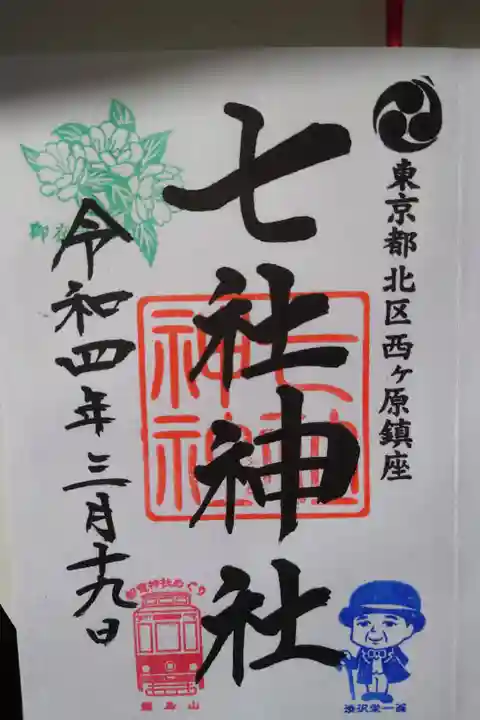 東京都北区西ヶ原鎮座
七社神社
七社神社
令和四年三月十九日
都電神社めぐり
飛鳥山
渋沢栄一翁